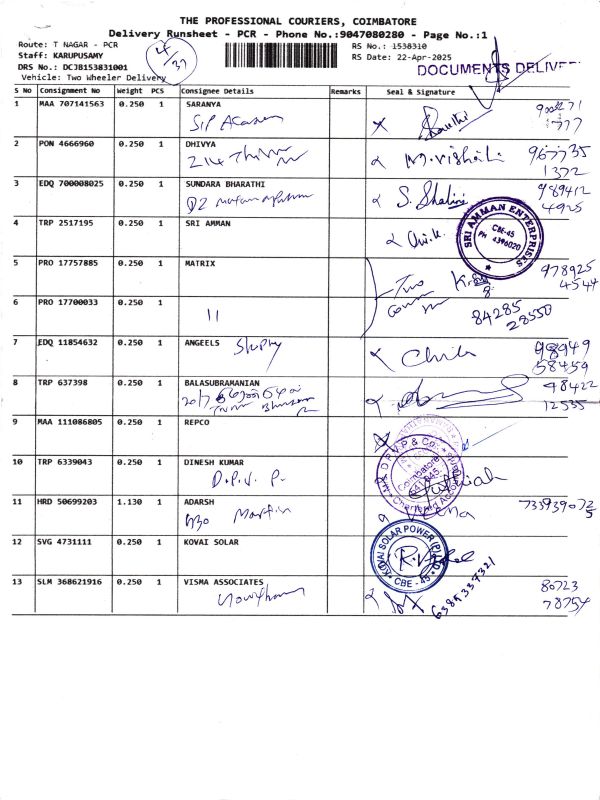 THE PROFESSIONAL COURIERS, COIMBATORE
Delivery Runsheet - PCR - Phone No.:9047080280 - Page No.:1
Route: T NAGAR - PCR
Staff: KARUPUSAMY
DRS No.: DCJB153831001
Vehicle: Two Wheeler Delivery
RS No.: 1538310
RS Date: 22-Apr-2025
DOCUMENTS DELIVE
S No Consignment No Weight PCS Consignee Details Remarks Seal & Signature
1 MAA 707141563 0.250 1 SARANYA
2 PON 4666960 0.250 1 DHIVYA M.vishali 967735
1372
3 EDQ 700008025 0.250 1 SUNDARA BHARATHI S. Shalini 989412
4925
4 TRP 2517195 0.250 1 SRI AMMAN
SRI AMMAN ENTERPRISES
CBE-45
PH 4396020
5 PRO 17757885 0.250 1 MATRIX 978925
4544
6 PRO 17700033 0.250 1 84285
11 28550
7 EDQ 11854632 0.250 1 ANGEELS 98949
58459
8 TRP 637398 0.250 1 BALASUBRAMANIAN 98422
12535
9 MAA 111086805 0.250 1 REPCO
10 TRP 6339043 0.250 1 DINESH KUMAR
D.R.V.P & Co.
Coimbatore
641 045.
Chartered Accountants
11 HRD 50699203 1.130 1 ADARSH
Martin
12 SVG 4731111 0.250 1 KOVAI SOLAR
KOVAI SOLAR POWER (P)
CBE - 45
13 SLM 368621916 0.250 1 VISMA ASSOCIATES 80723
78754
6385337321